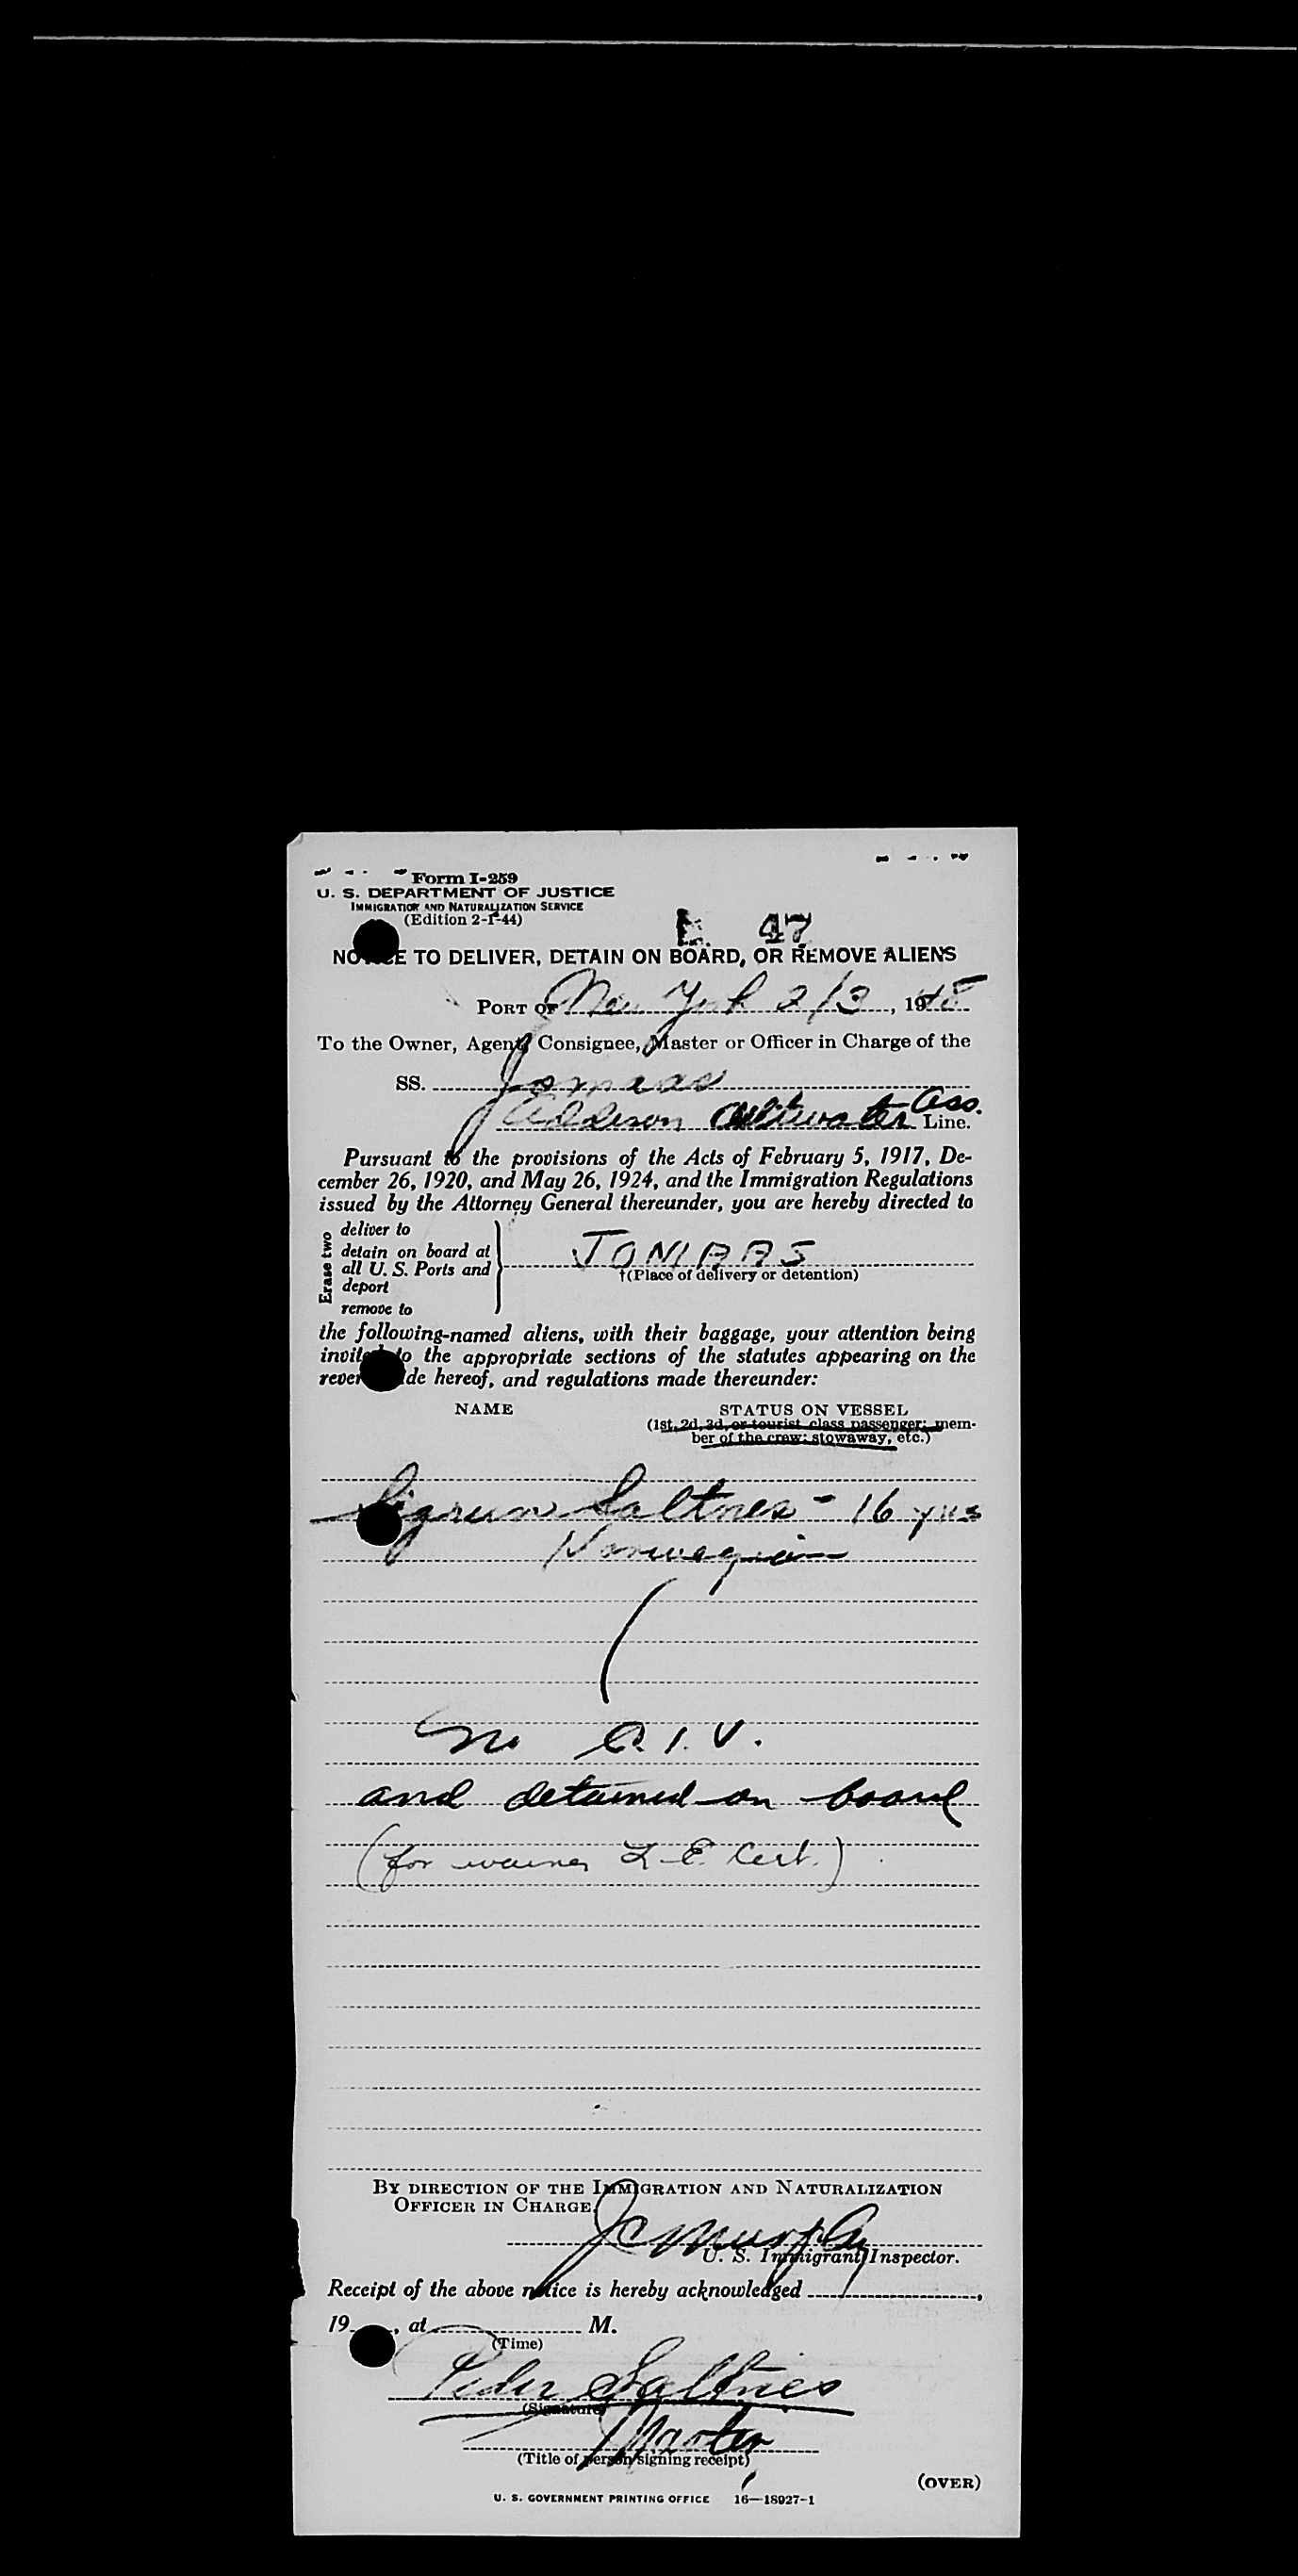 Form I-259
U. S. DEPARTMENT OF JUSTICE
IMMIGRATION AND NATURALIZATION SERVICE
(Edition 2-1-44)
47
NOTICE TO DELIVER, DETAIN ON BOARD, OR REMOVE ALIENS
PORT OF New York 2/3, 1948
To the Owner, Agent, Consignee, Master or Officer in Charge of the
SS. Jomaas
Addison Ass.
Line.
Pursuant to the provisions of the Acts of February 5, 1917, De-
cember 26, 1920, and May 26, 1924, and the Immigration Regulations
issued by the Attorney General thereunder, you are hereby directed to
Erase two
deliver to
detain on board at
all U. S. Ports and
deport
remove to
JOMAAS
†(Place of delivery or detention)
the following-named aliens, with their baggage, your attention being
invited to the appropriate sections of the statutes appearing on the
reverse side hereof, and regulations made thereunder:
NAME STATUS ON VESSEL
(1st, 2d, 3d, or tourist class passenger; mem-
ber of the crew; stowaway, etc.)
Sigrun Saltnes - 16 yrs
Norwegian
No C.I.V.
and detained on board
(for Cert.)
BY DIRECTION OF THE IMMIGRATION AND NATURALIZATION
OFFICER IN CHARGE.
JC Murphy
U. S. Immigrant Inspector.
Receipt of the above notice is hereby acknowledged
19 , at M.
(Time)
Peder Saltnes
(Signature)
Master
(Title of person signing receipt)
(OVER)
U. S. GOVERNMENT PRINTING OFFICE 16—18927-1